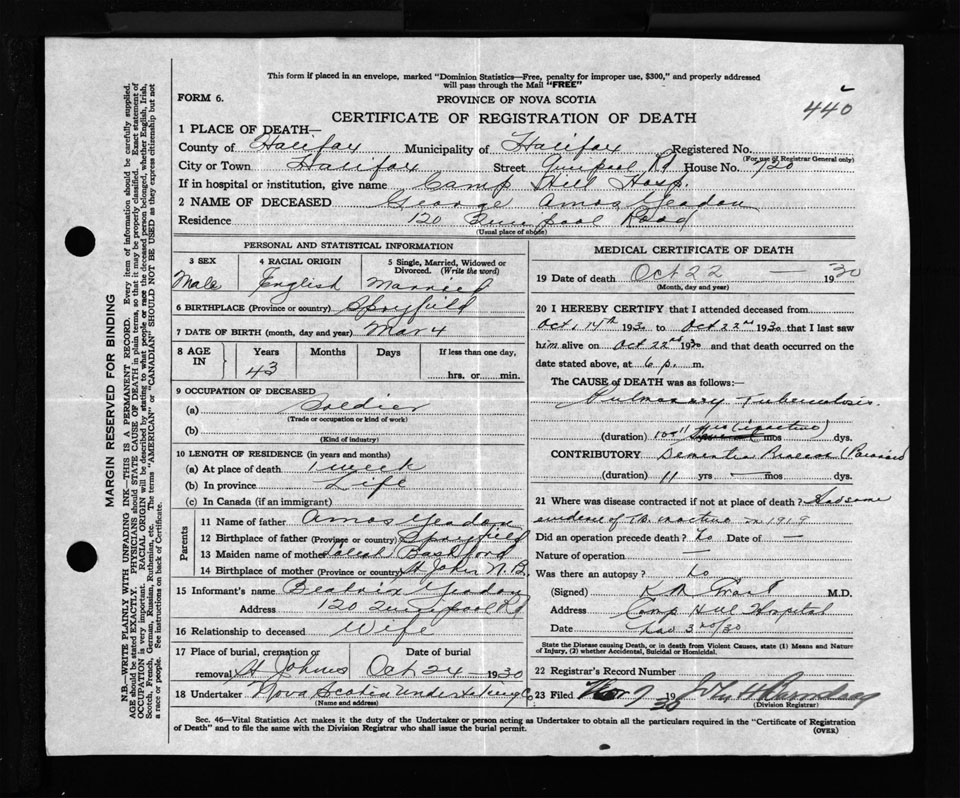 This form if placed in an envelope, marked "Dominion Statistics—Free, penalty for improper use, $300," and properly addressed
will pass through the Mail "FREE"
FORM 6.
PROVINCE OF NOVA SCOTIA
440
CERTIFICATE OF REGISTRATION OF DEATH
1 PLACE OF DEATH—
County of Halifax Municipality of Halifax Registered No.
(For use of Registrar General only)
City or Town Halifax Street Quinpool Rd House No. 120
If in hospital or institution, give name Camp Hill Hosp.
2 NAME OF DECEASED George Amos Yeadon
Residence 120 Quinpool Road
(Usual place of abode)
PERSONAL AND STATISTICAL INFORMATION
3 SEX 4 RACIAL ORIGIN 5 Single, Married, Widowed or
Divorced. (Write the word)
Male English Married
6 BIRTHPLACE (Province or country) Spryfield
7 DATE OF BIRTH (month, day and year) Mar 4
8 AGE IN Years Months Days If less than one day,
43 hrs. or min.
9 OCCUPATION OF DECEASED
(a) Soldier
(Trade or occupation or kind of work)
(b)
(Kind of industry)
10 LENGTH OF RESIDENCE (in years and months)
(a) At place of death 1 week
(b) In province Life
(c) In Canada (if an immigrant)
Parents
11 Name of father Amos Yeadon
12 Birthplace of father (Province or country) Spryfield
13 Maiden name of mother Bashford
14 Birthplace of mother (Province or country) St John N.B.
15 Informant's name Beatrix Yeadon
Address 120 Quinpool Rd
16 Relationship to deceased Wife
17 Place of burial, cremation or Date of burial
removal St Johns Oct 24 1930
18 Undertaker Nova Scotia Undertaking Co.
(Name and address)
MEDICAL CERTIFICATE OF DEATH
19 Date of death Oct 22 — 1930
(Month, day and year)
20 I HEREBY CERTIFY that I attended deceased from
Oct 14th 1930 to Oct 22nd 1930 that I last saw
him alive on Oct 22nd 1930 and that death occurred on the
date stated above, at 6 p. m.
The CAUSE of DEATH was as follows:
Pulmonary Tuberculosis.
(duration) yrs (inactive) mos dys.
CONTRIBUTORY Dementia Praecox (Paranoid
(duration) 11 — mos dys.
21 Where was disease contracted if not at place of death? Had some
evidence of TB. inactive in 1919
Did an operation precede death? No Date of —
Nature of operation —
Was there an autopsy? No
(Signed) M.D.
Address Camp Hill Hospital
Date Nov 3rd/30
State the Disease causing Death, or in death from Violent Causes, state (1) Means and Nature of Injury, (2) whether Accidental, Suicidal or Homicidal.
22 Registrar's Record Number
23 Filed Nov 7 1930
(Division Registrar)
Sec. 46—Vital Statistics Act makes it the duty of the Undertaker or person acting as Undertaker to obtain all the particulars required in the "Certificate of Registration
of Death" and to file the same with the Division Registrar who shall issue the burial permit.
(OVER)
MARGIN RESERVED FOR BINDING
N.B.—WRITE PLAINLY WITH UNFADING INK—THIS IS A PERMANENT RECORD. Every item of information should be carefully supplied.
AGE should be stated EXACTLY. PHYSICIANS should STATE CAUSE OF DEATH in plain terms, so that it may be properly classified. Exact statement of
OCCUPATION is very important. RACIAL ORIGIN will be described by stating to what people or race the deceased person belonged, whether English, Irish,
Scotch, French, German, Russian, Ruthenian, etc. The terms "AMERICAN" or "CANADIAN" SHOULD NOT BE USED as they express citizenship but not
a race or people. See instructions on back of Certificate.